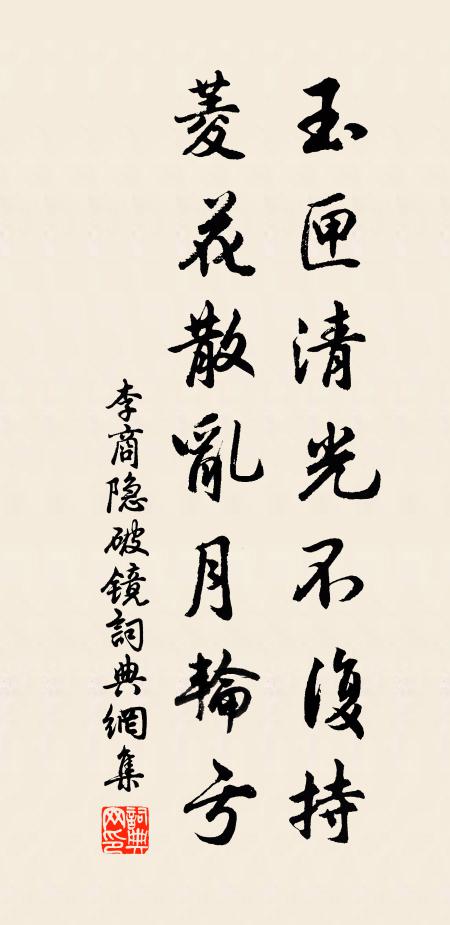 玉匣清光不復持
菱花散亂月輪亏
李商隐破镜詞典網集
詞典網印